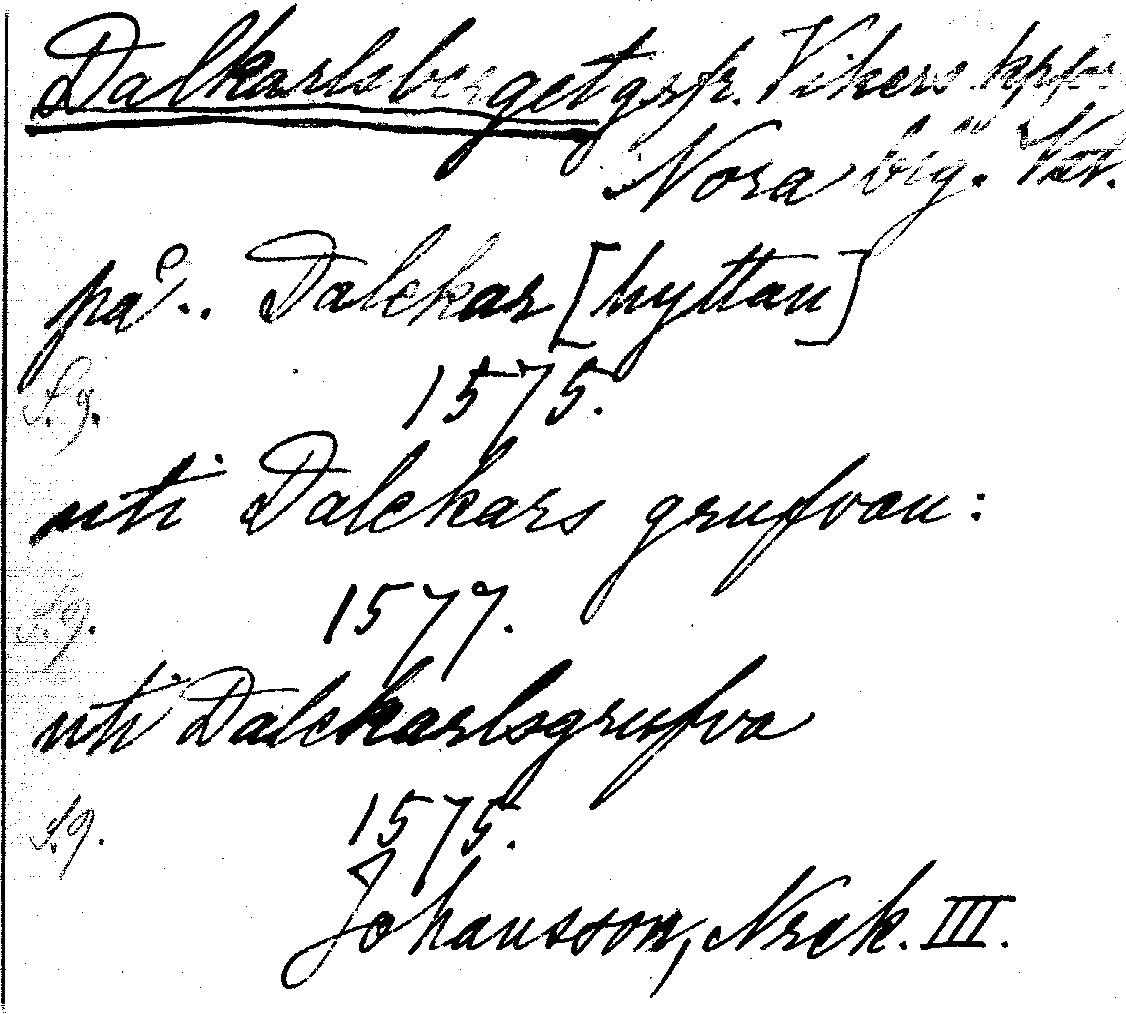 Dalkarlsberget gsfr. Vikers kpfr.
Nora bg. Vstr.
på.. Dalckar [hyttan]
S.g. 1575.
uti Dalckars grufvan:
S.g. 1577.
uti Dalckarlsgrufva
S.g. 1575.
Johansson, Nrck. III.